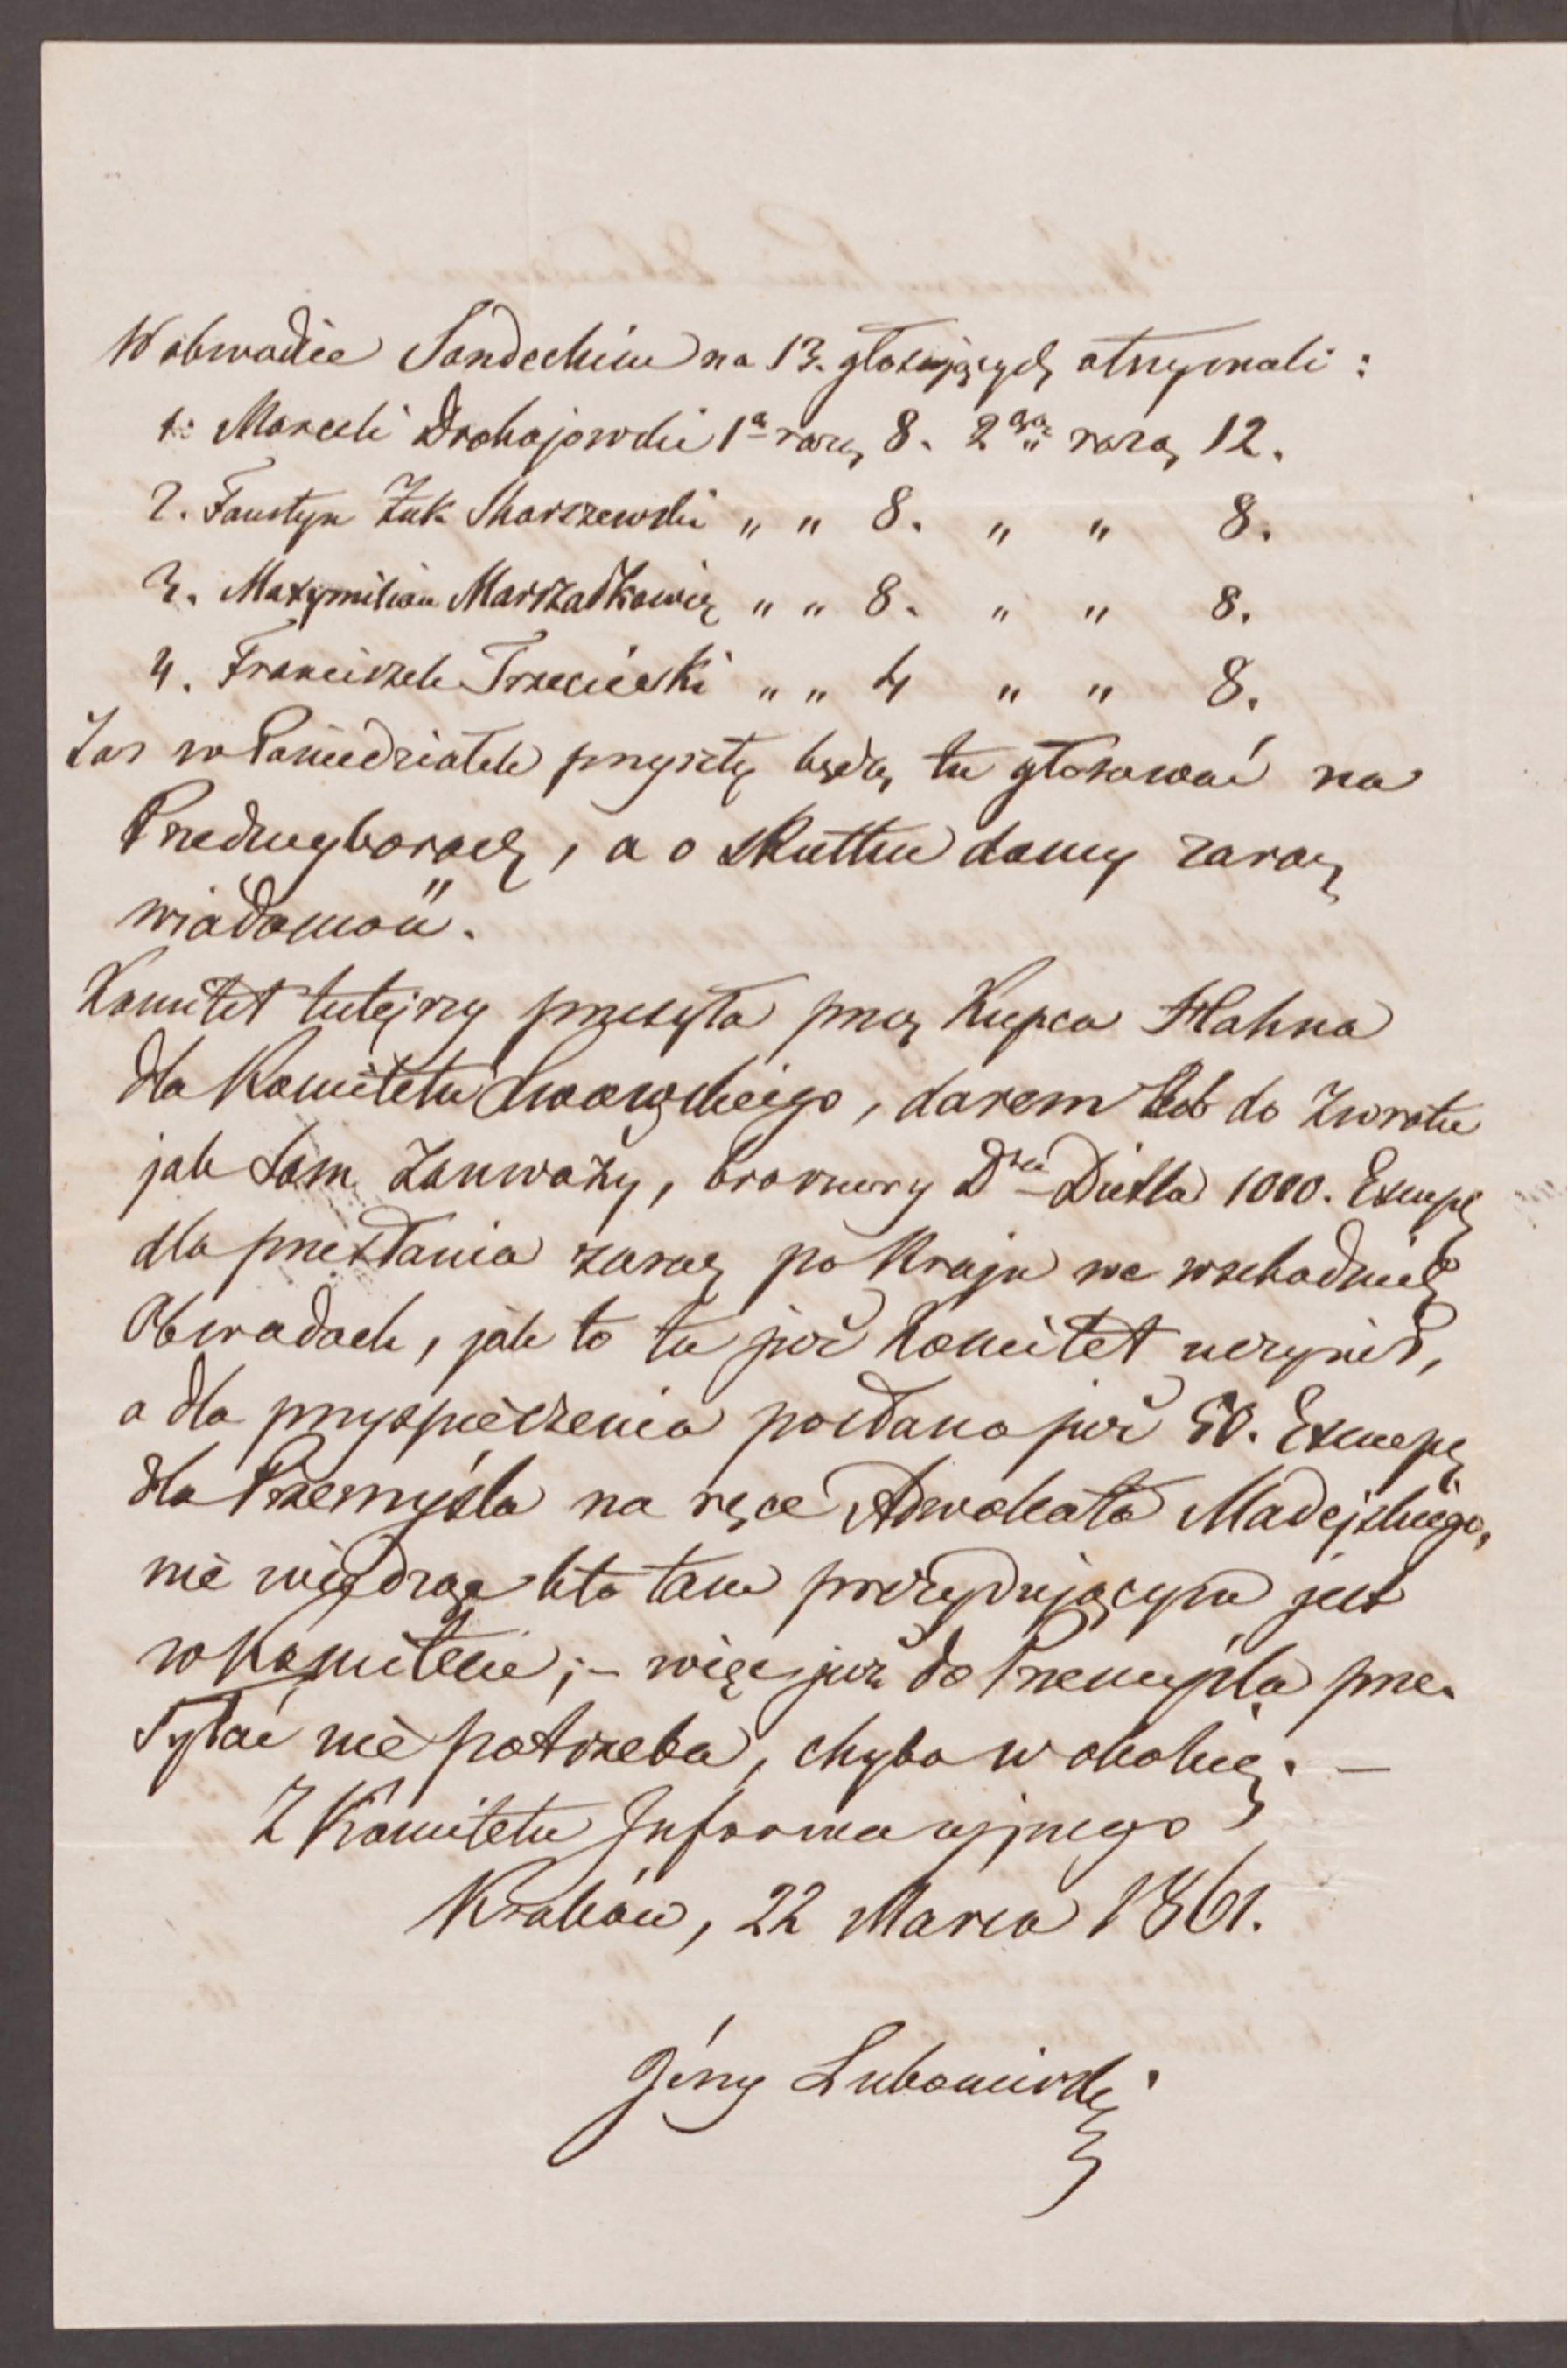 W obwodzie Sandeckim na 13. głosujących otrzymali:
1. Marceli Drohojowski 1ą razą 8. 2gą razą 12.
2. Faustyn Żuk Skarszewski " " 8. " " 8.
3. Maxymilian Marszałkowicz " " 8. " " 8.
4. Franciszek Trzecieski " " 4 " " 8.
Zaś w Poniedziałek przyszły będą tu głosować na
Przedwyborach, a o skutku damy zaraz
wiadomość.
Komitet tutejszy przesyła przez Kupca Hahna
dla Komitetu Lwowskiego, darem lub do zwrotu
jak sam zauważy, broszury Dra Dietla 1000. Exempl
dla przesłania zaraz po kraju we wschodnich
Obwodach, jak to tu już Komitet uczynił,
a dla przyspieszenia posłano już 50. Exempl
dla Przemyśla na ręce Adwokata Madejskiego,
nie wiedząc kto tam prezydującym jest
w Komitecie; – więc już do Przemyśla prze-
syłać nie potrzeba, chyba w okolicę. —
Z Komitetu Informacyjnego
Kraków, 22 Marca 1861.
Jerzy Lubomirski